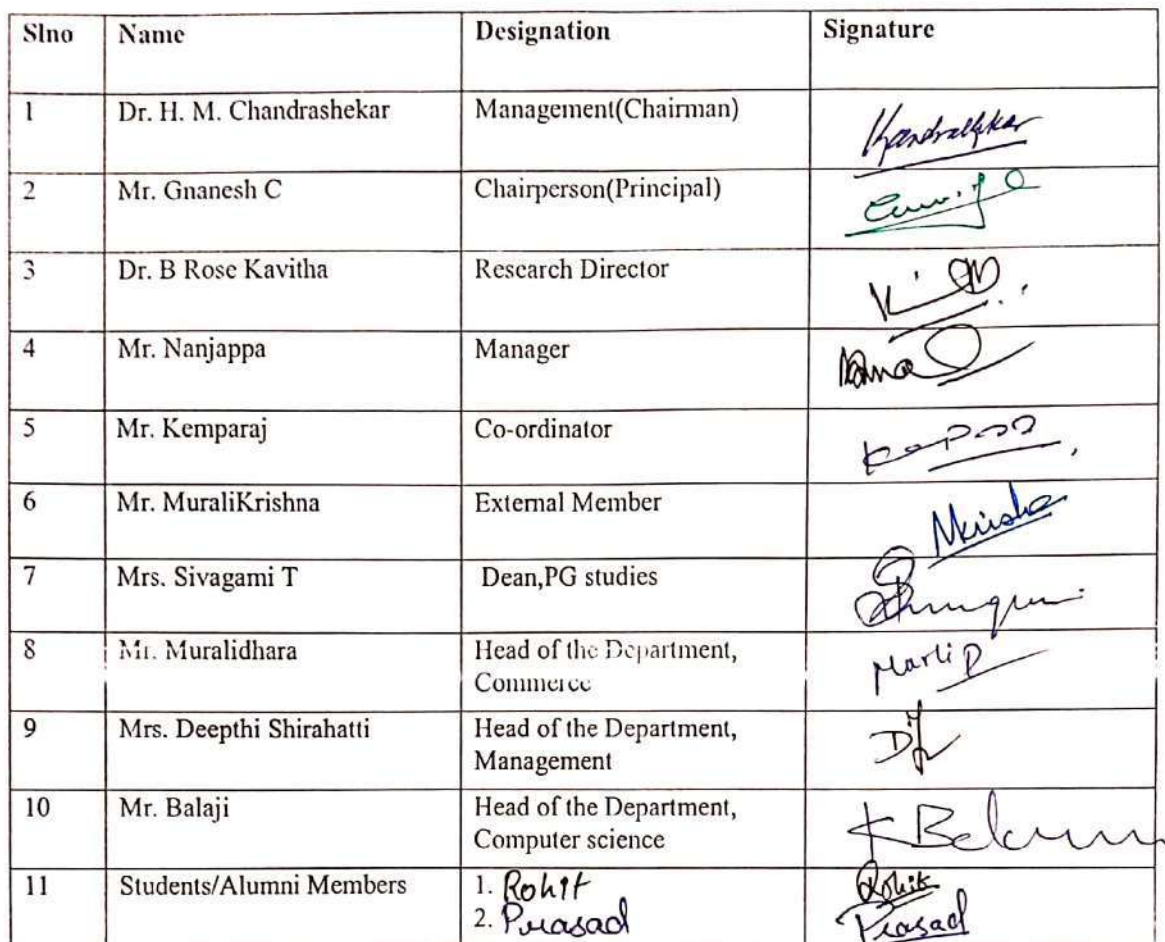 Slno Name Designation Signature
1 Dr. H. M. Chandrashekar Management(Chairman)
2 Mr. Gnanesh C Chairperson(Principal)
3 Dr. B Rose Kavitha Research Director
4 Mr. Nanjappa Manager
5 Mr. Kemparaj Co-ordinator
6 Mr. MuraliKrishna External Member
7 Mrs. Sivagami T Dean,PG studies
8 Mr. Muralidhara Head of the Department,
Commerce
9 Mrs. Deepthi Shirahatti Head of the Department,
Management
10 Mr. Balaji Head of the Department,
Computer science
11 Students/Alumni Members 1. Rohit Rohit
2. Prasad Prasad